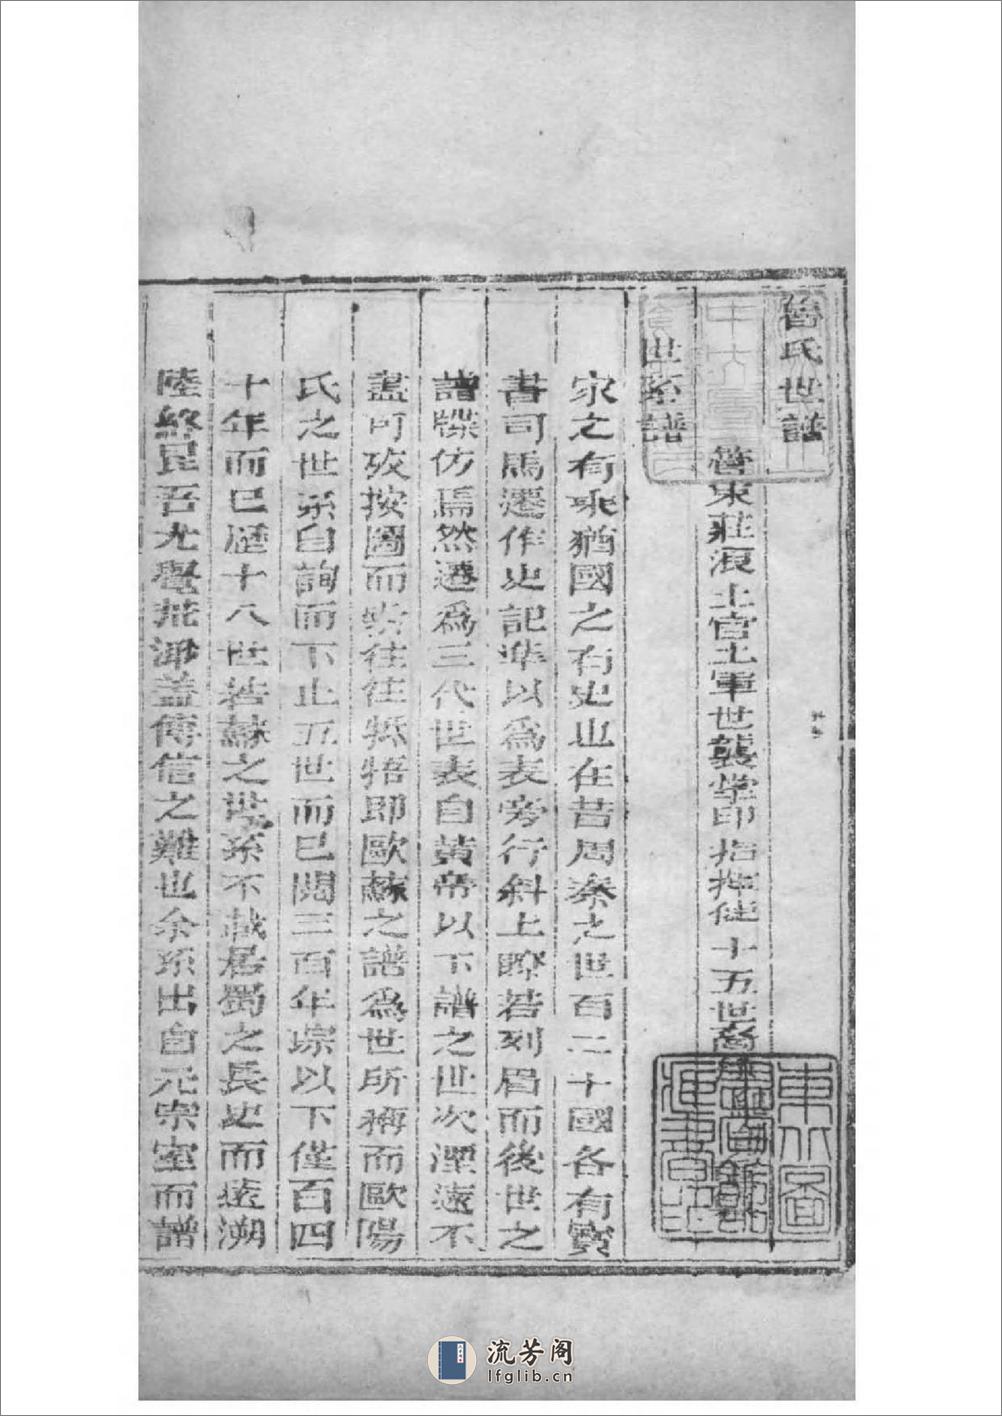 魯氏世譜
管束莊浪土官土軍世襲掌印指揮使十五世裔
世系譜
家之有乘猶國之有史也在昔周秦之世百二十國各有寳
書司馬遷作史記準以爲表旁行斜上瞭若列眉而後世之
譜牒仿焉然遷爲三代世表自黃帝以下譜之世次湮遠不
盡可攷按圖而索往往牴牾即歐蘇之譜爲世所稱而歐陽
氏之世系自詢而下止五世而已閱三百年琮以下僅百四
十年而已歷十八世若蘇之世系不載居蜀之長史而遠溯
陸終昆吾尤覺荒渺蓋傳信之難也余系出自元宗室而譜
東方圖
流芳阁
lfglib.cn